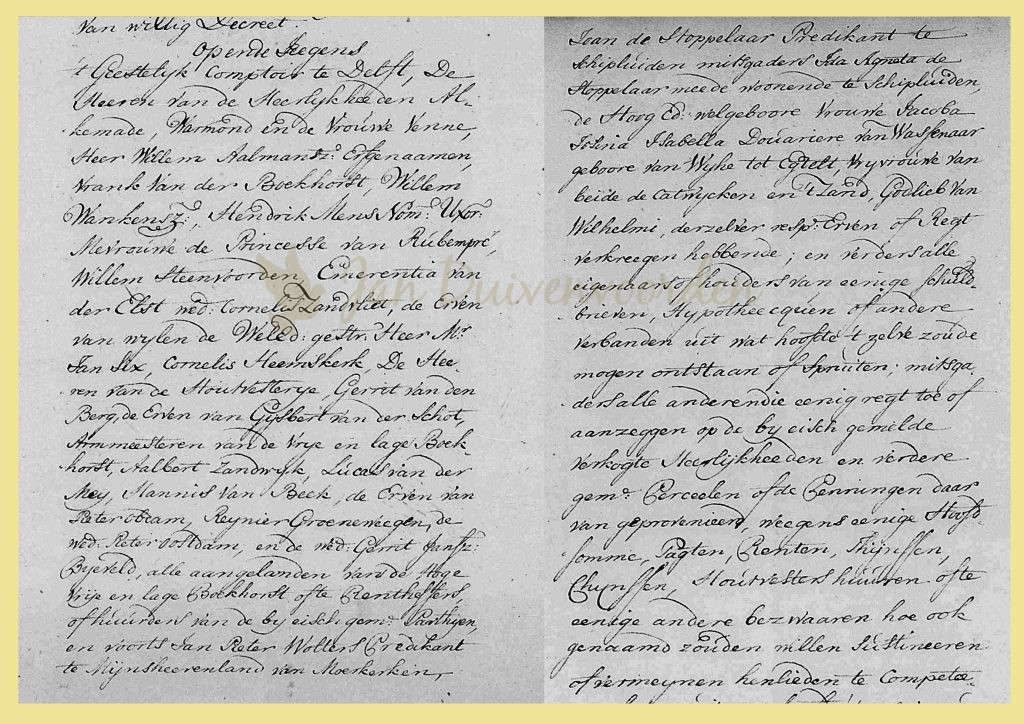 van willig Decreet.
Op ende Jeegens
't Geestelijk Comptoir te Delft, De
Heeren van de Heerlijkheeden Al-
kemade, Warmond en de Vrouwe Venne,
Heer Willem Aalmansz: Erfgenaamen,
Vrank van der Boekhorst, Willem
Wankensz:, Hendrik Mens Nom: Uxor:
Mevrouwe de Princesse van Rubempré,
Willem Steenvoorden, Emerentia van
der Elst wed: Cornelis Zandvliet, de Erven
van wylen de WelEd: gestr: Heer Mr.
Jan Six, Cornelis Heemskerk, De Hee-
ren van de Houtvesterye, Gerrit van den
Berg, de Erven van Gysbert van der Schot,
Armmeesteren van de Vrye en lage Boek-
horst, Aalbert Zandwyk, Lucas van der
Mey, Hannis van Beek, de Erven van
Pieter obdam, Reynier Groenewegen, de
wed: Pieter oostdam, en de wed: Gerrit Jansz:
Byeveld, alle aangelanden van de Hoge
Vrye en lage Boekhorst ofte Rentheffers
of huurders van de by eisch gem: Parthyen,
en voorts Jan Pieter Wolters Predikant
te Mijnsheerenland van Moerkerken,
Joan de Stoppelaar Predikant te
Schipluiden mitsgaders Ida Agneta de
Stoppelaar meede woonende te Schipluiden,
de Hoog Ed: welgeboore Vrouwe Jacoba
Isabella Douariere van Wassenaar
geboore van Wyhe tot Egtelt, Vryvrouwe van
beide de Catwycken en 't Zand, Godlieb van
Wilhelmi, derzelver resp: Erven of Regt
verkreegen hebbende; en verders alle
eigenaars of houders van eenige schuld
brieven, Hypothecquen of andere
verbanden uit wat hoofde 't zelve zoude
mogen ontstaan of spruiten; mitsga-
ders alle anderen die eenig regt toe of
aanzeggen op de by eisch gemelde
verkogte Heerlijkheeden en verdere
gem: Perceelen of de Penningen daar
van geprovenieerd, weegens eenige Hoofd-
somme, Pagten, Renten, Thijnssen,
Chynssen, Houtvesters huuren ofte
eenige andere bezwaaren hoe ook
genaamd zouden willen Sustineeren
of vermeynen henlieden te Compete-
Jan Duivenvoorden